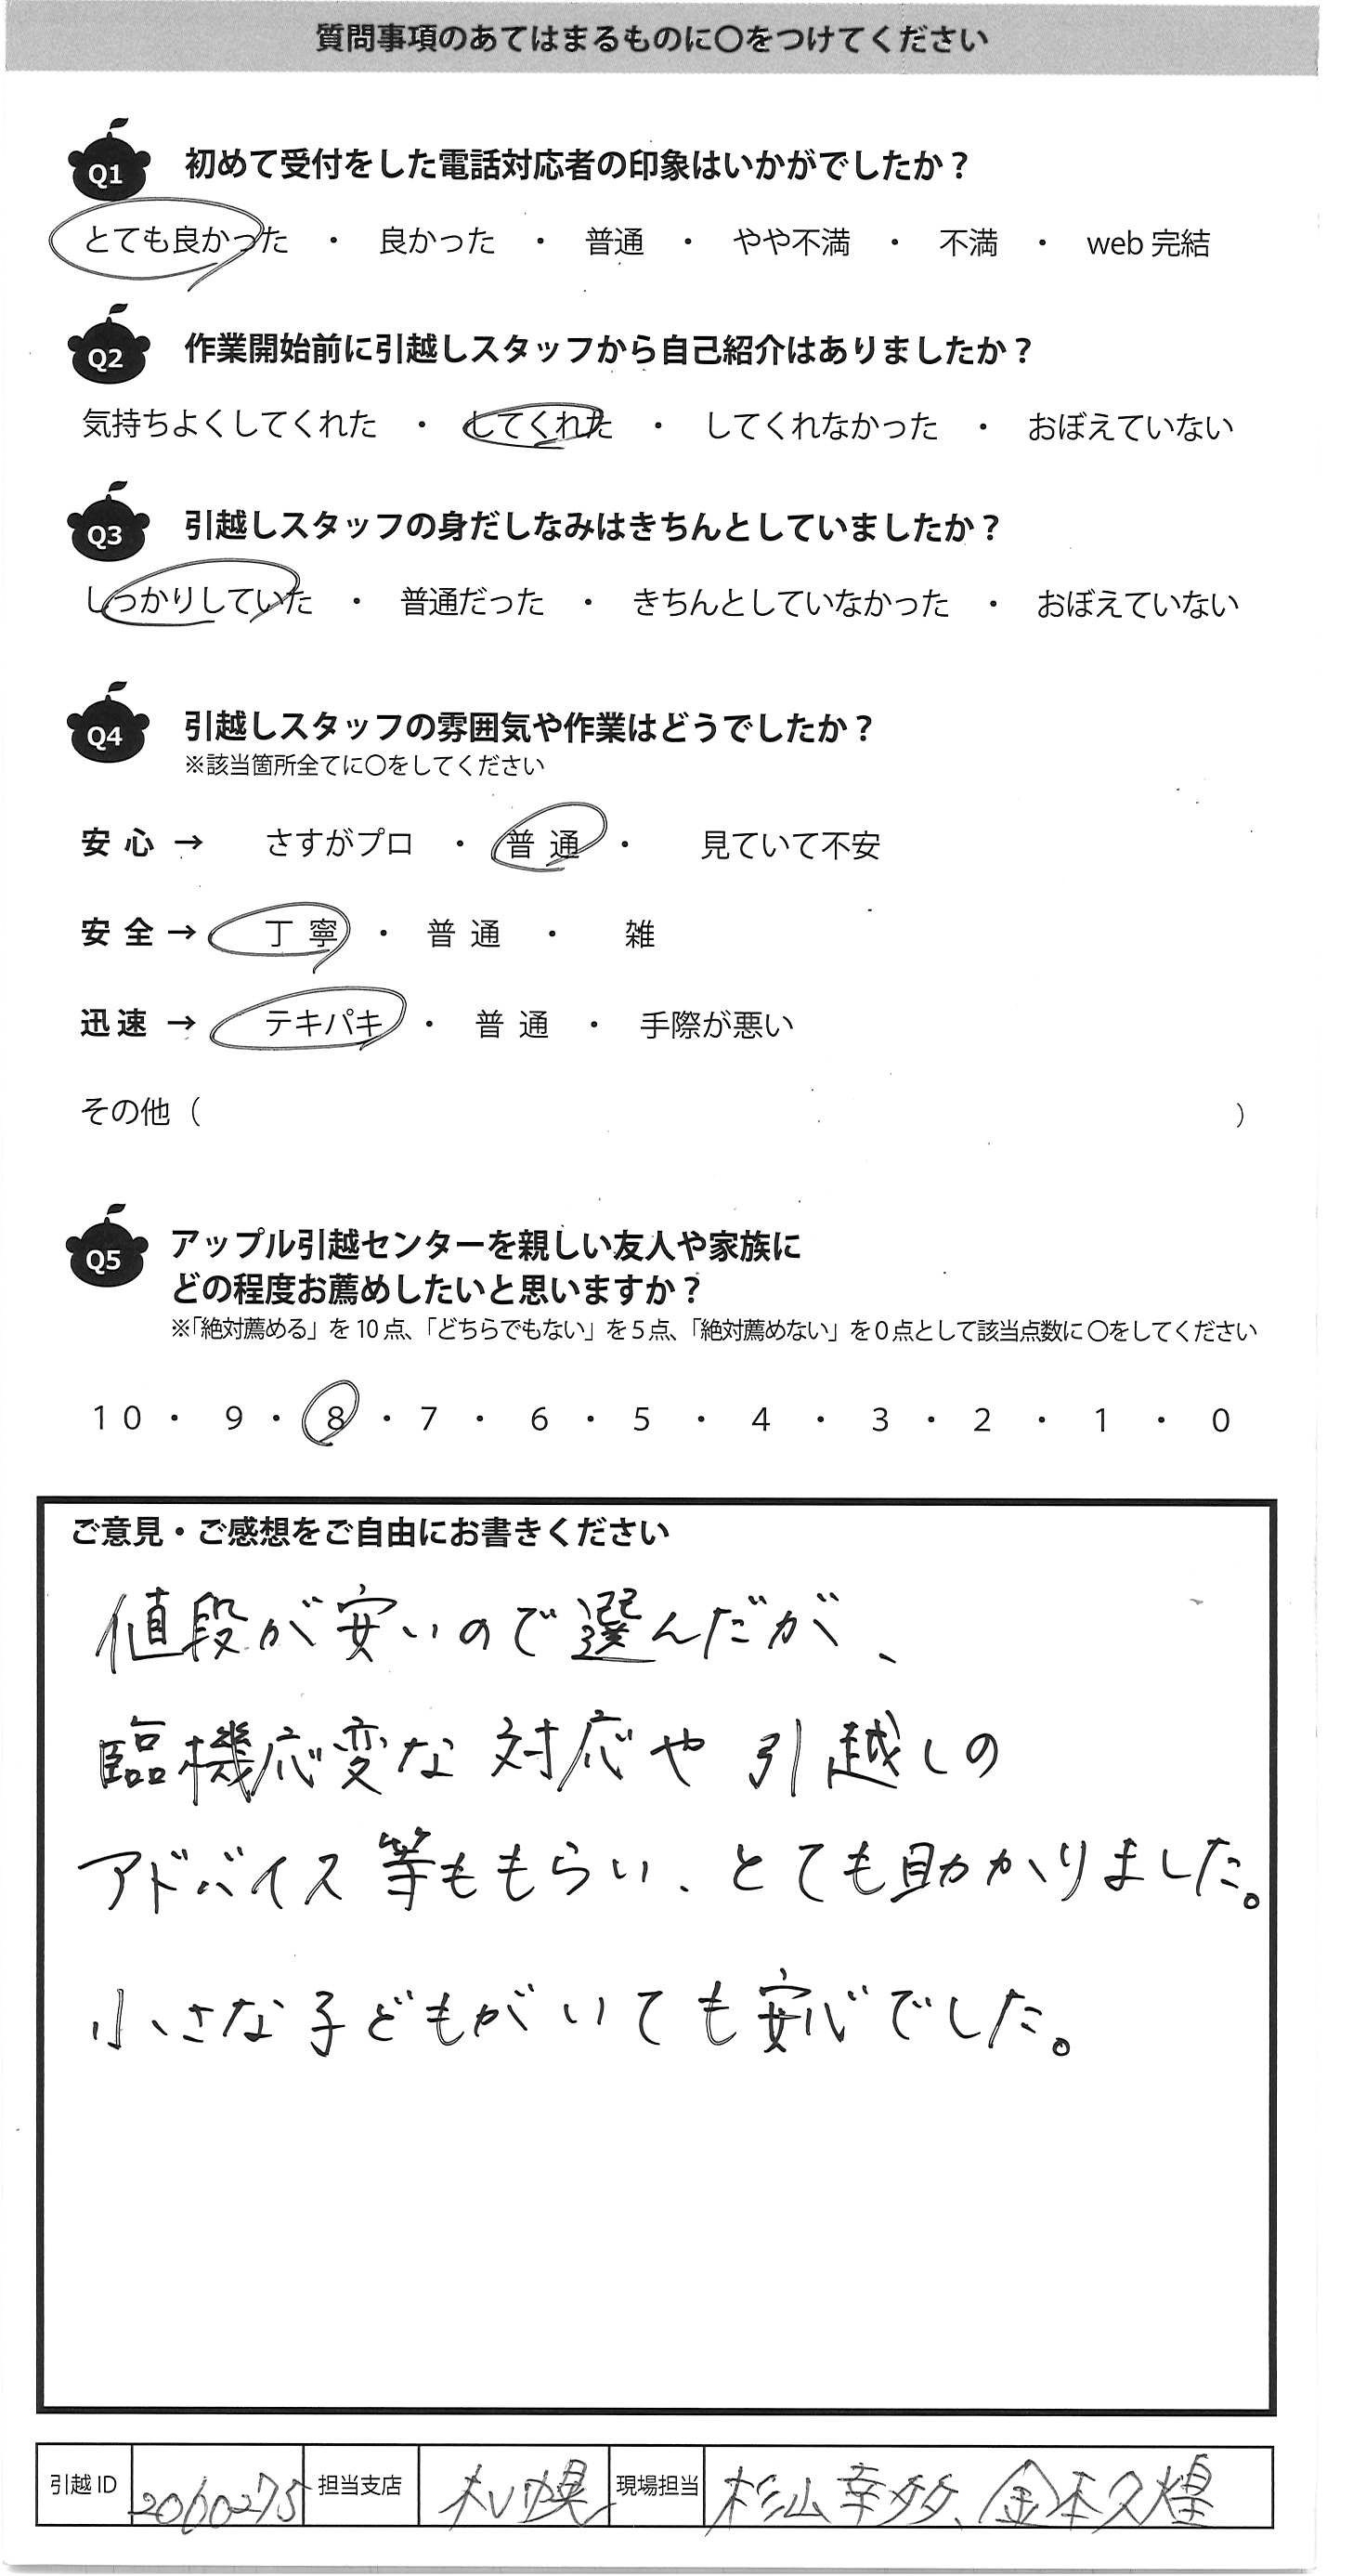 質問事項のあてはまるものに〇をつけてください
Q1 初めて受付をした電話対応者の印象はいかがでしたか？
とても良かった ・ 良かった ・ 普通 ・ やや不満 ・ 不満 ・ web 完結
Q2 作業開始前に引越しスタッフから自己紹介はありましたか？
気持ちよくしてくれた ・ してくれた ・ してくれなかった ・ おぼえていない
Q3 引越しスタッフの身だしなみはきちんとしていましたか？
しっかりしていた ・ 普通だった ・ きちんとしていなかった ・ おぼえていない
Q4 引越しスタッフの雰囲気や作業はどうでしたか？
※該当箇所全てに〇をしてください
安心 → さすがプロ ・ 普通 ・ 見ていて不安
安全 → 丁寧 ・ 普通 ・ 雑
迅速 → テキパキ ・ 普通 ・ 手際が悪い
その他（ ）
Q5 アップル引越センターを親しい友人や家族に
どの程度お薦めしたいと思いますか？
※「絶対薦める」を10点、「どちらでもない」を5点、「絶対薦めない」を0点として該当点数に〇をしてください
10 ・ 9 ・ 8 ・ 7 ・ 6 ・ 5 ・ 4 ・ 3 ・ 2 ・ 1 ・ 0
ご意見・ご感想をご自由にお書きください
値段が安いので選んだが、
臨機応変な対応や引越しの
アドバイス等ももらい、とても助かりました。
小さな子どもがいても安心でした。
引越ID 2060275 担当支店 札幌 現場担当 杉山幸多、金本久煌